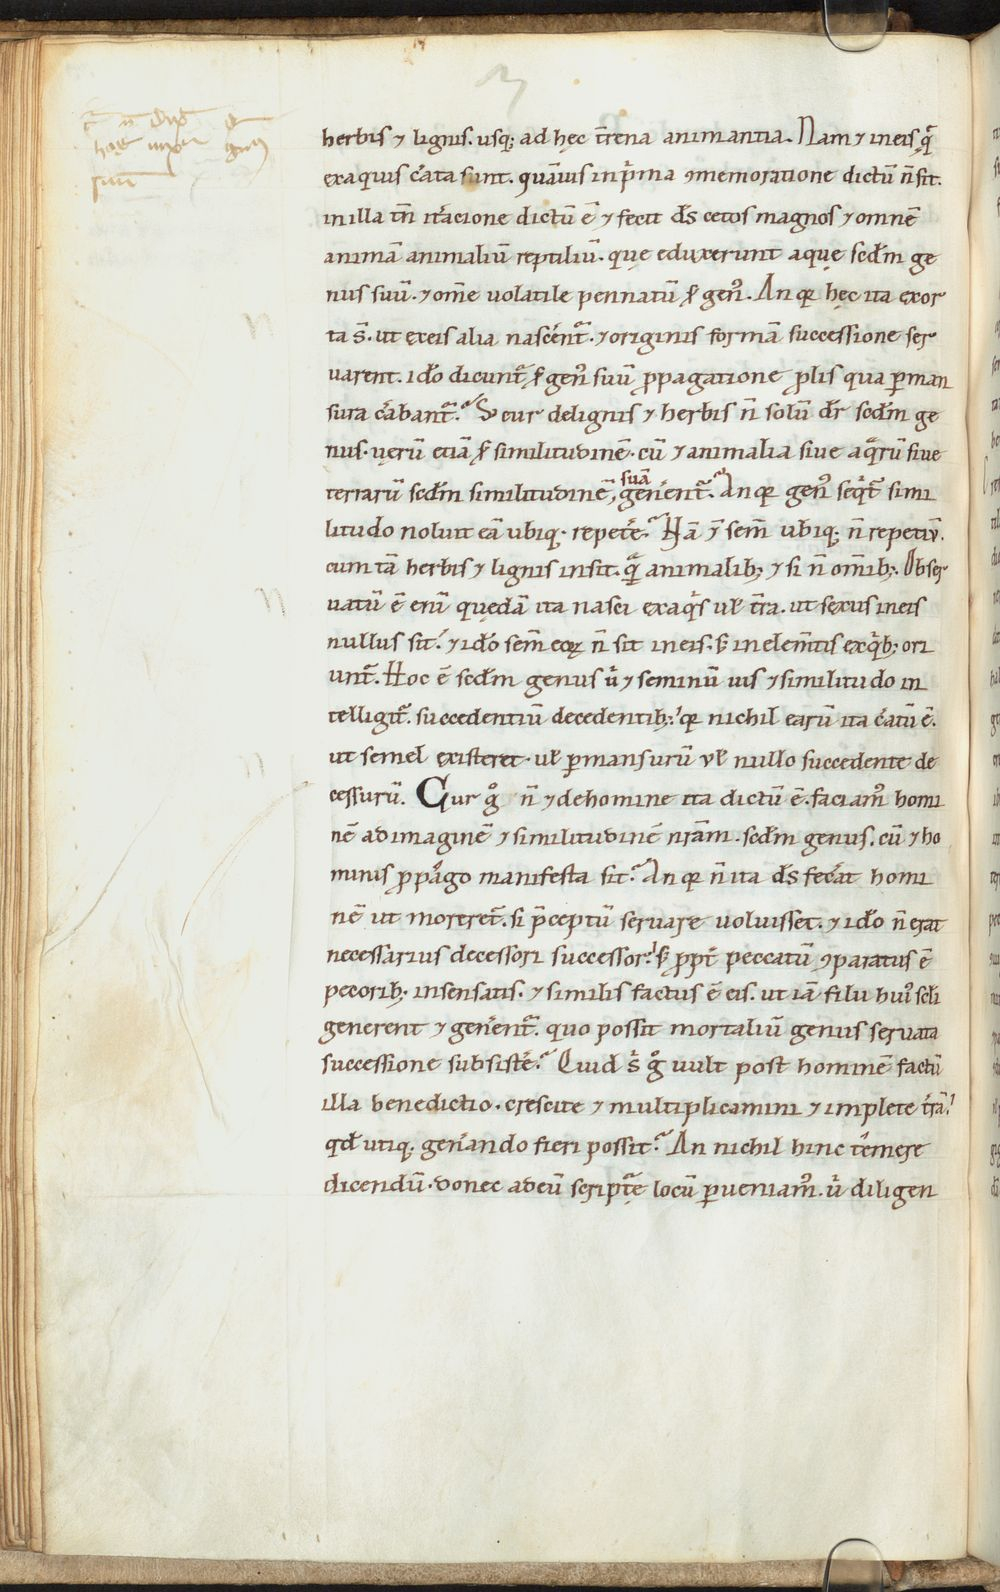 herbis ⁊ lignis. usq; ad hęc t̄rena animantia. Nam ⁊ in eis q̄
ex aquis c̄ata sunt. quāuis in p̄ma ꝯmemoratione dictū n̄ sit.
in illa tn̄ it̄acione dictū ē ⁊ fecit d̄s cetos magnos ⁊ omnē
animā animaliū reptiliū. quę eduxerunt aquę sedm̄ ge
nus suū. ⁊ om̄e uolatile pennatū ſ̄ gen᷒. An qꝛ hęc ita exor
ta s̄. ut ex eis alia nascerent᷑. ⁊ originis formā successione ser
uarent. ido dicunt᷑ ſ̄ gen᷒ suū ꝓpagatione ꝓlis qua ꝑman
sura c̄abant᷑. S; cur de lignis ⁊ herbis n̄ solū dr̄ sedm̄ ge
nus. uerū etiā ſ̄ similitudinē. cū ⁊ animalia siue aq̄rū siue
terrarū sedm̄ similitudinē, suā gen̄ent᷑. An qꝛ gen᷒ seq̄t᷑ simi
litudo noluit eā ubiq. repete᷑. Nā ⁊ sem̄ ubiq; n̄ repetiv̄.
cum tā herbis ⁊ lignis insit. q̄ animalib; ⁊ si n̄ om̄ib;. Obser
uatū ē enī quędā ita nasci ex aq̄s uł t̄ra. ut sexus in eis
nullus sit. ⁊ ido sem̄ eoꝝ n̄ sit in eis. s; in elem̄tis ex q̄b; ori
unt᷑. Hoc ē sedm̄ genus u̇ ⁊ seminū uis ⁊ similitudo in
telligit᷑. succedentiū decedentib;. qꝛ nichil earū ita c̄atū ē.
ut semel existeret. uł ꝑmansurū uł nullo succedente de
cessurū. Cur g̊ n̄ ⁊ de homine ita dictū ē. faciam᷒ homi
nē ad imaginē ⁊ similitudinē nr̄am. sedm̄ genus. cū ⁊ ho
minis ꝓpago manifesta sit. An qꝛ n̄ ita d̄s fec̄at homi
nē ut moreret᷑. si p̄ceptū seruare uoluisset. ⁊ ido n̄ erat
necessarius decessori successor. s; ꝓpt̄ peccatū ꝯparatus ē
pecorib; insensatis. ⁊ similis factus ē eis. ut iā filii hui᷒ scl̄i
generent ⁊ gen̄ent᷑. quo possit mortaliū genus seruata
successione subsiste᷑. Quid s̄ g̊ uult post hominē factū
illa benedictio. crescite ⁊ multiplicamini ⁊ implete t̄rā.
qd̄ utiq. gen̄ando fieri possit. An nichil hinc tēmere
dicendū. donec ad eū scriptᷓę locū ꝑueniam᷒. u̇ diligen